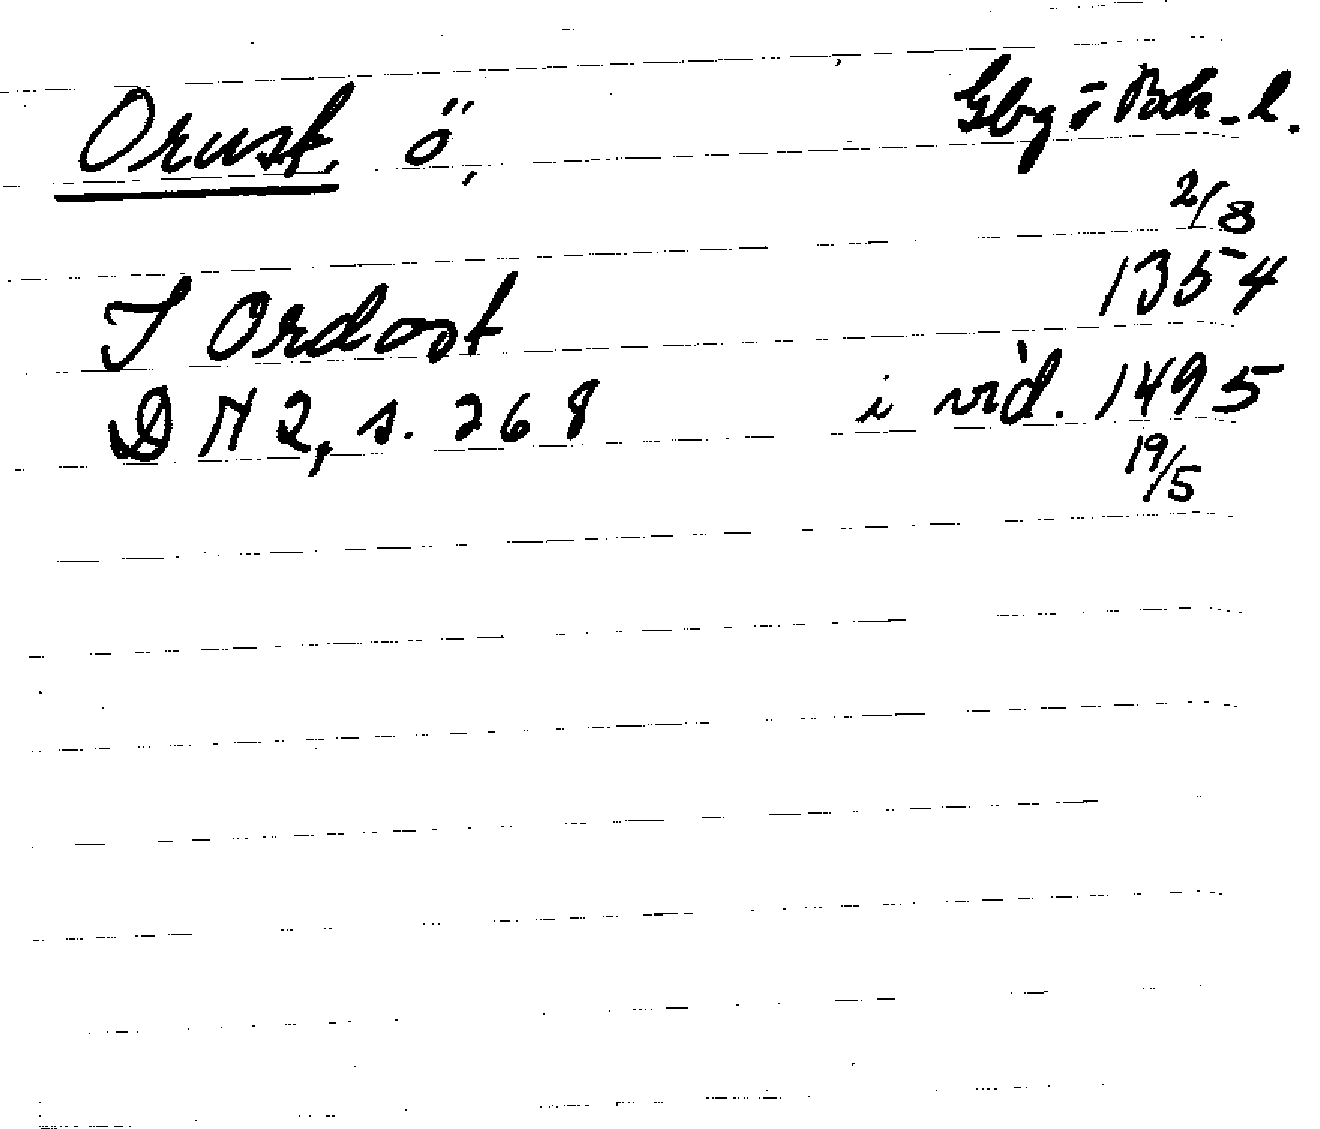 Orust, ö, Gbg o Boh.l.
2/8
I Ordost 1354
D N 2, s. 268 i vid. 1495
19/5